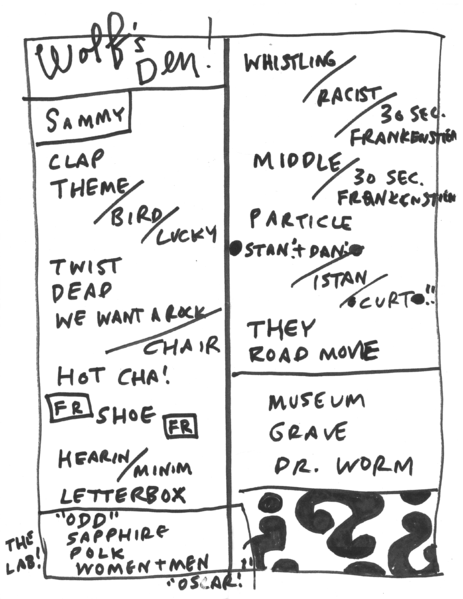 Wolf's
Den!
SAMMY
CLAP
THEME
BIRD
LUCKY
TWIST
DEAD
WE WANT A ROCK
CHAIR
HOT CHA!
FR SHOE FR
HEARIN/MINIM
LETTERBOX
THE LAB!
"ODD"
SAPPHIRE
POLK
WOMEN+MEN
"OSCAR!"
WHISTLING
RACIST
30 SEC.
FRANKENSTEIN
MIDDLE
30 SEC.
FRANKENSTEIN
PARTICLE
STAN!+DAN!
ISTAN
CURT!!
THEY
ROAD MOVIE
MUSEUM
GRAVE
DR. WORM